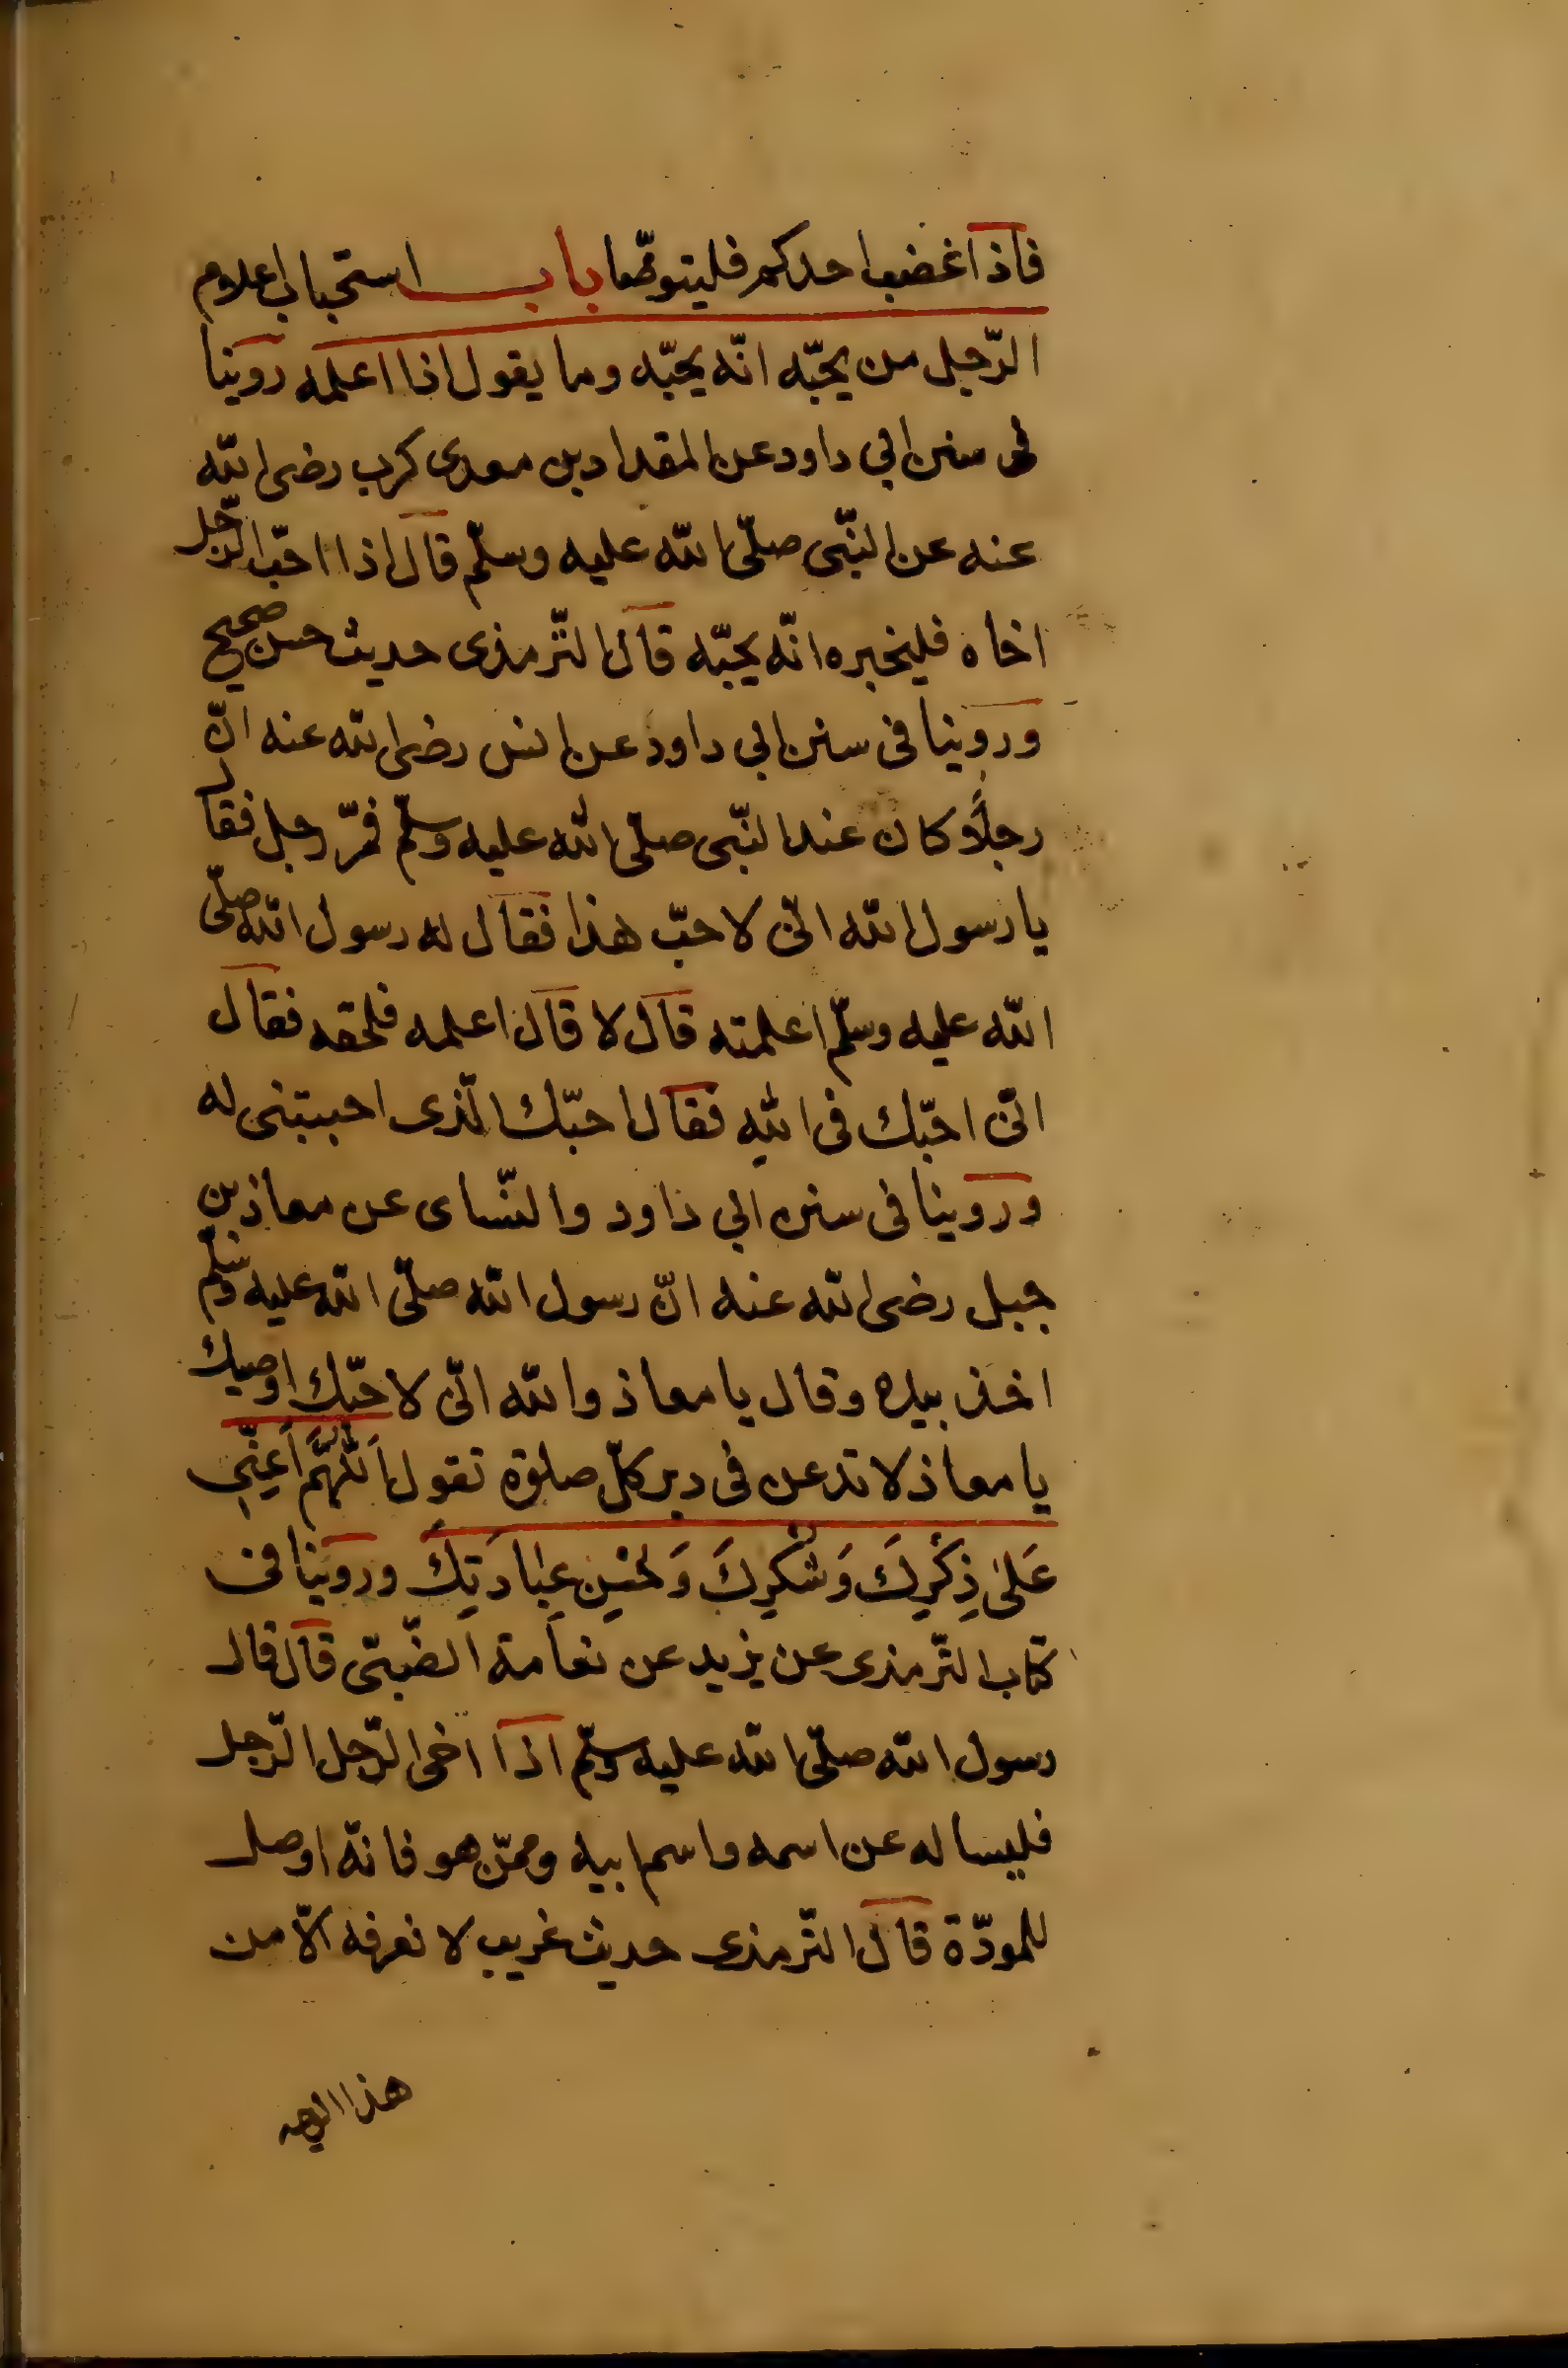 فاذا غضب احدكم فليتوضّا باب استحباب اعلام
الرّجل من يحبّه انّه يحبّه وما يقول اذا اعلمه روينا
فى سنن ابي داود عن المقداد بن معدى كرب رضى الله
عنه عن النّبى صلّى الله عليه وسلّم قال اذا احبّ الرّجل
اخاه فليخبره انّه يحبّه قال التّرمذى حديث حسن صحيح
وروينا فى سنن ابي داود عن انس رضى الله عنه انّ
رجلًا كان عند النّبى صلّى الله عليه وسلّم فمرّ رجل فقال
يا رسول الله انّى لاحبّ هذا فقال له رسول الله صلّى
الله عليه وسلّم اعلمته قال لا قال اعلمه فلحقه فقال
انّى احبّك فى الله فقال احبّك الّذى احببتنى له
وروينا فى سنن ابي داود والنّساى عن معاذ بن
جبل رضى الله عنه انّ رسول الله صلّى الله عليه وسلّم
اخذ بيده وقال يا معاذ والله انّى لاحبّك اوصيك
يا معاذ لا تدعن فى دبر كلّ صلوة تقول اَللّٰهُمَّ اَعِنِّى
عَلىٰ ذِكْرِكَ وَشُكْرِكَ وَحُسْنِ عِبَادَتِكَ وروينا فى
كتاب التّرمذى عن يزيد عن نعامة الضّبّى قال قال
رسول الله صلّى الله عليه وسلّم اذا آخى الرّجل الرّجل
فليساله عن اسمه واسم ابيه وممّن هو فانّه اوصل
للمودّة قال التّرمذى حديث غريب لا نعرفه الّا من
هذا الوجه